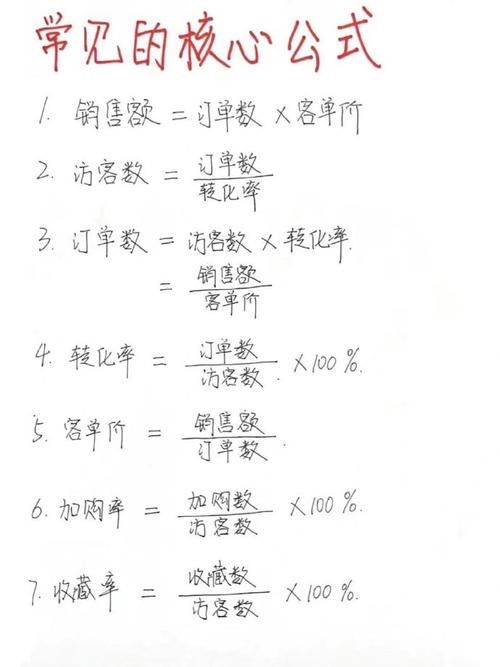 常见的核心公式
1. 销售额 = 订单数 × 客单价
2. 访客数 = 订单数 / 转化率
3. 订单数 = 访客数 × 转化率.
= 销售额 / 客单价
4. 转化率 = 订单数 / 访客数 × 100%.
5. 客单价 = 销售额 / 订单数.
6. 加购率 = 加购数 / 访客数 × 100%.
7. 收藏率 = 收藏数 / 访客数 × 100%.